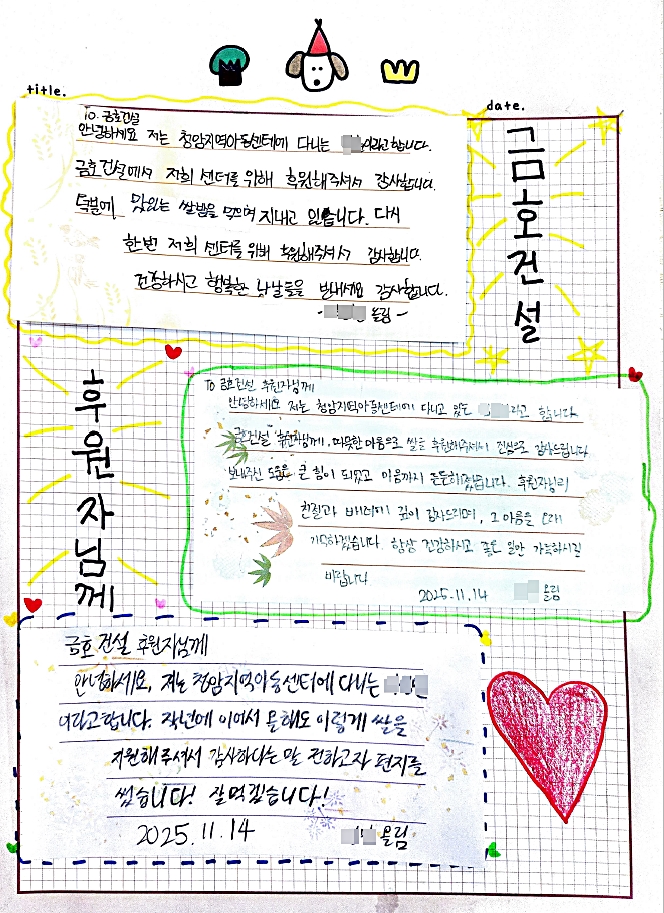 title.
date.
금호건설
To. 금호건설
안녕하세요 저는 청암지역아동센터에 다니는 이라고합니다.
금호건설에서 저희 센터를 위해 후원해주셔서 감사합니다.
덕분에 맛있는 쌀밥을 먹으며 지내고 있습니다. 다시
한번 저희 센터를 위해 후원해주셔서 감사합니다.
건강하시고 행복한 나날들을 보내세요 감사합니다.
- 올림 -
후원자님께
To 금호건설 후원자님께
안녕하세요 저는 청암지역아동센터에 다니고 있는 라고 합니다.
금호건설 후원자님께, 따뜻한 마음으로 쌀을 후원해주셔서 진심으로 감사드립니다
보내주신 도움은 큰 힘이 되었고 마음까지 든든해졌습니다. 후원자님의
친절과 배려에 깊이 감사드리며, 그 마음을 오래
기억하겠습니다. 항상 건강하시고 좋은 일만 가득하시길
바랍니다
2025.11.14 올림
금호 건설 후원자님께
안녕하세요, 저는 청암지역아동센터에 다니는
이라고합니다. 작년에 이어서 올해도 이렇게 쌀을
지원해주셔서 감사하다는 말 전하고자 편지를
썼습니다! 잘먹겠습니다!
2025.11.14 올림